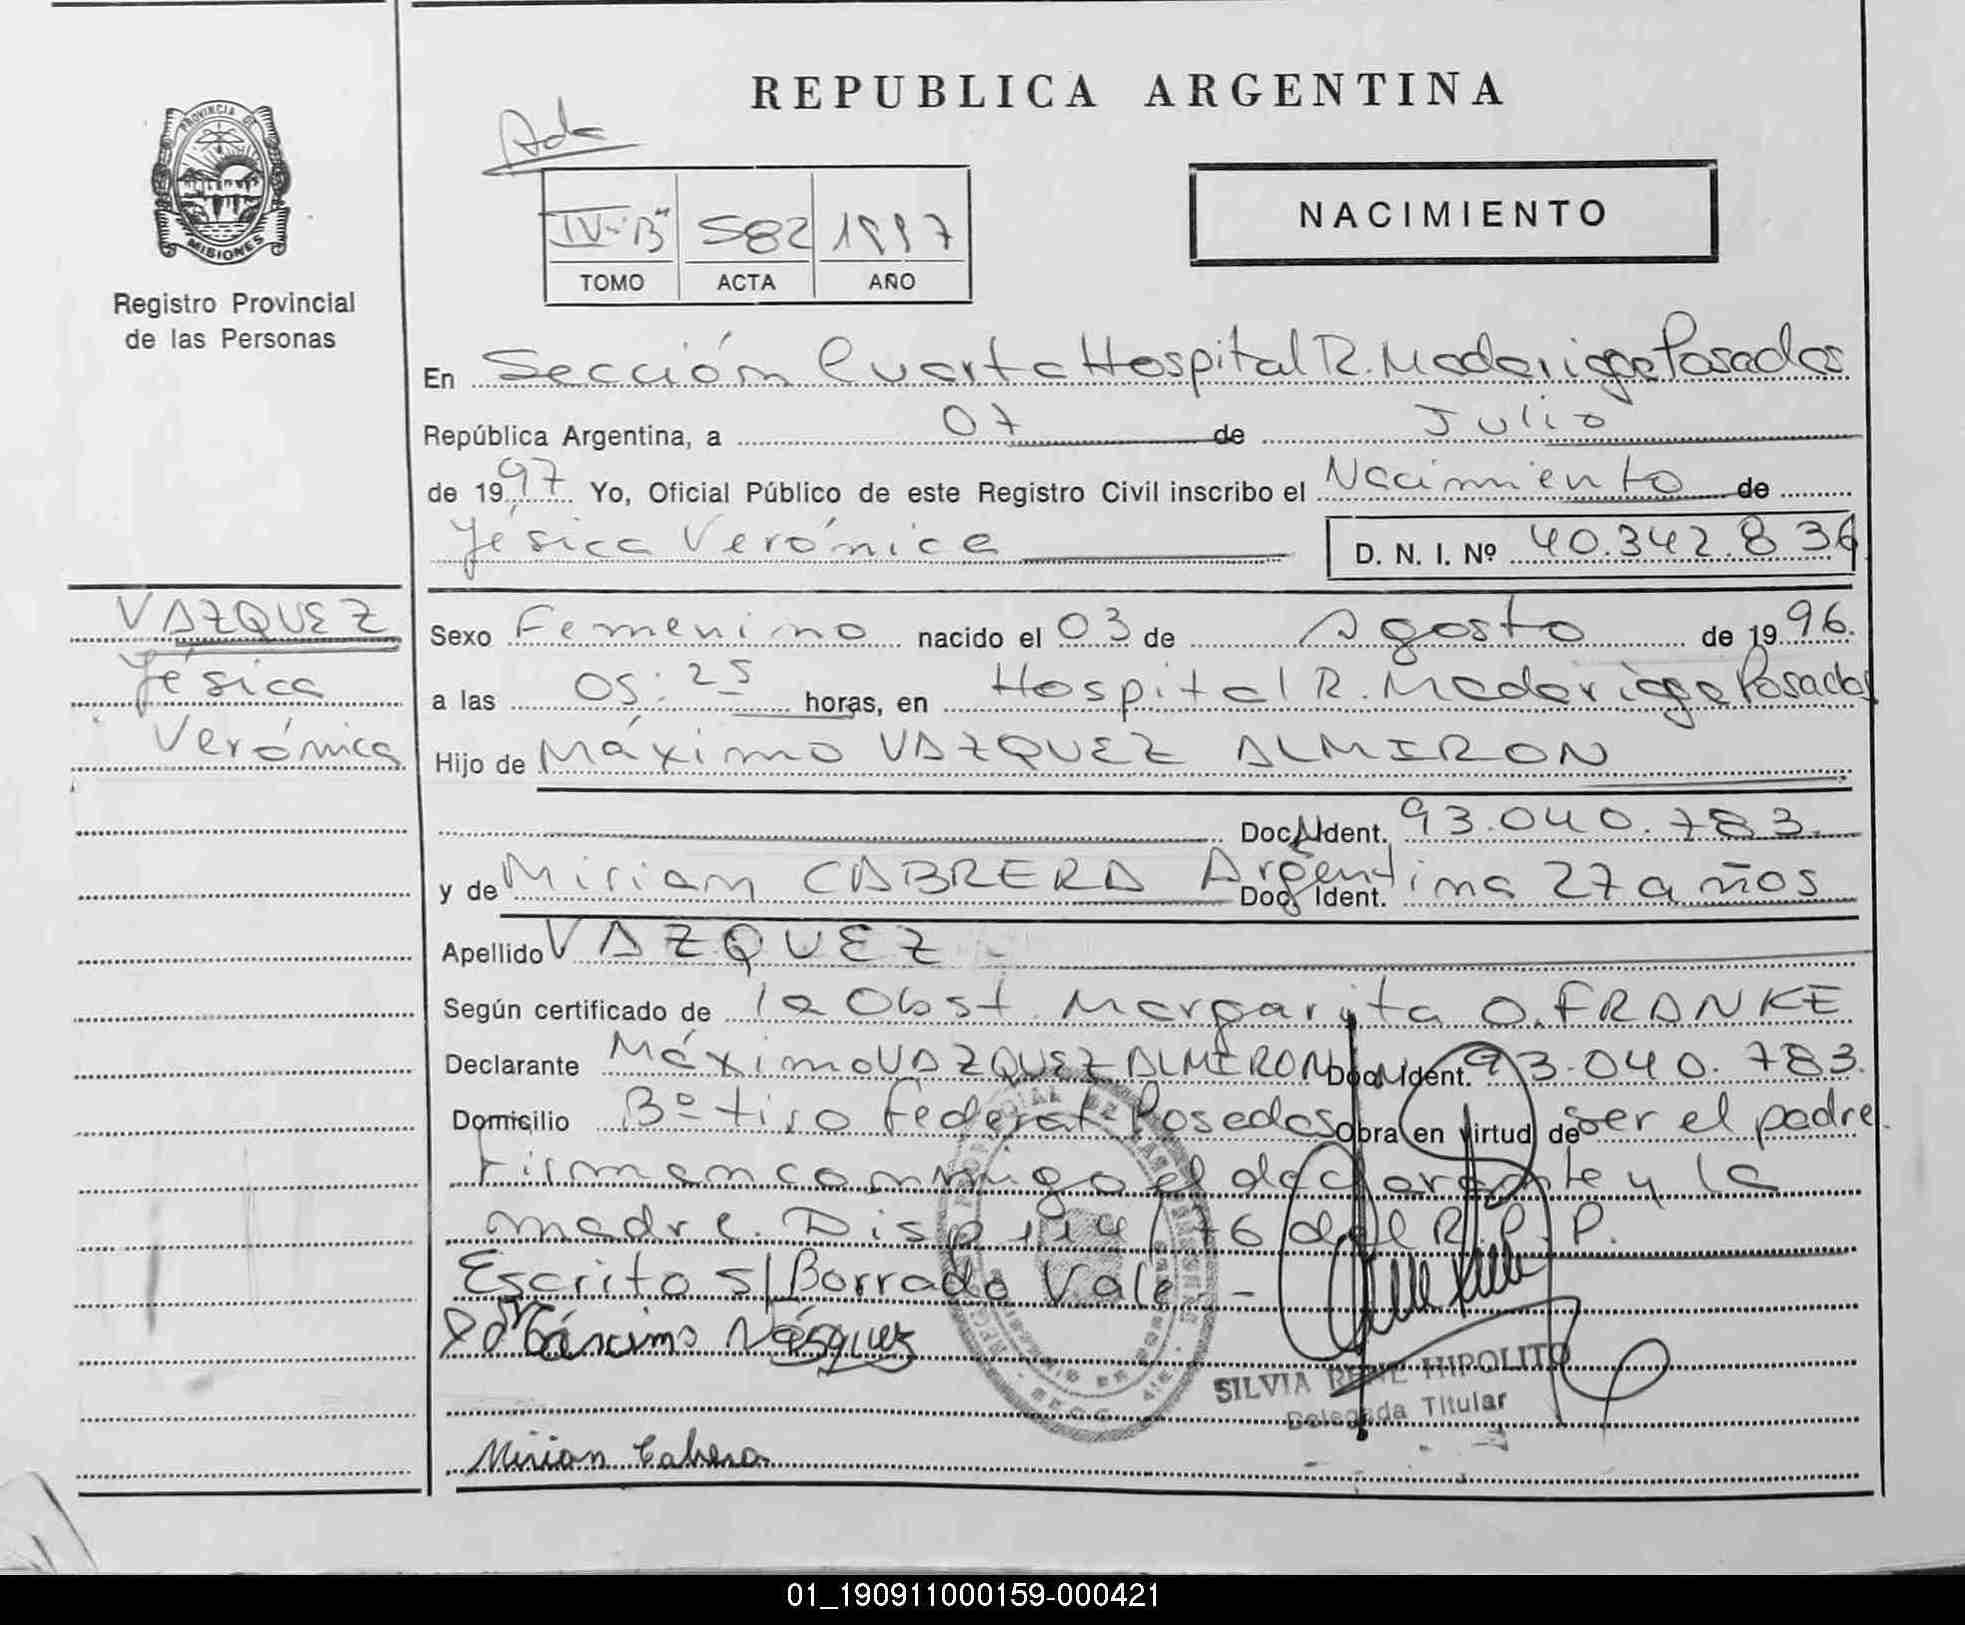 REPUBLICA ARGENTINA
PROVINCIA DE
MISIONES
Registro Provincial
de las Personas
IV-"B" 582 1997
TOMO ACTA AÑO
NACIMIENTO
En Sección Cuarta Hospital R. Madariaga Posadas
República Argentina, a 07 de Julio
de 1997 Yo, Oficial Público de este Registro Civil inscribo el Nacimiento de
Yésica Verónica D. N. I. Nº 40.342.836
VAZQUEZ
Yésica
Verónica
Sexo Femenino nacido el 03 de Agosto de 1996.
a las 05:25 horas, en Hospital R. Madariaga Posadas
Hijo de Máximo VAZQUEZ ALMIRON
Doc. Ident. 93.040.783.
y de Miriam CABRERA Argentina 27 años
Doc. Ident.
Apellido VAZQUEZ -
Según certificado de la Obst. Margarita O. FRANKE
Declarante Máximo VAZQUEZ ALMIRON Doc. Ident. 93.040.783.
Domicilio Bº tiro Federal Posadas obra en virtud de ser el padre.
Firman conmigo el declarante y la
madre. Disp 114/76 del R.P.P.
Escrito s/Borrado Vale -
Máximo Vásquez
SILVIA RENE HIPOLITO
Delegada Titular
Mirian Cabrera
01_190911000159-000421